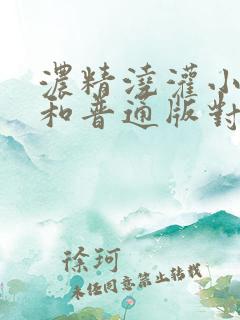 濃精澆灌小
和普通版對
徐珂
未经同意禁止转载